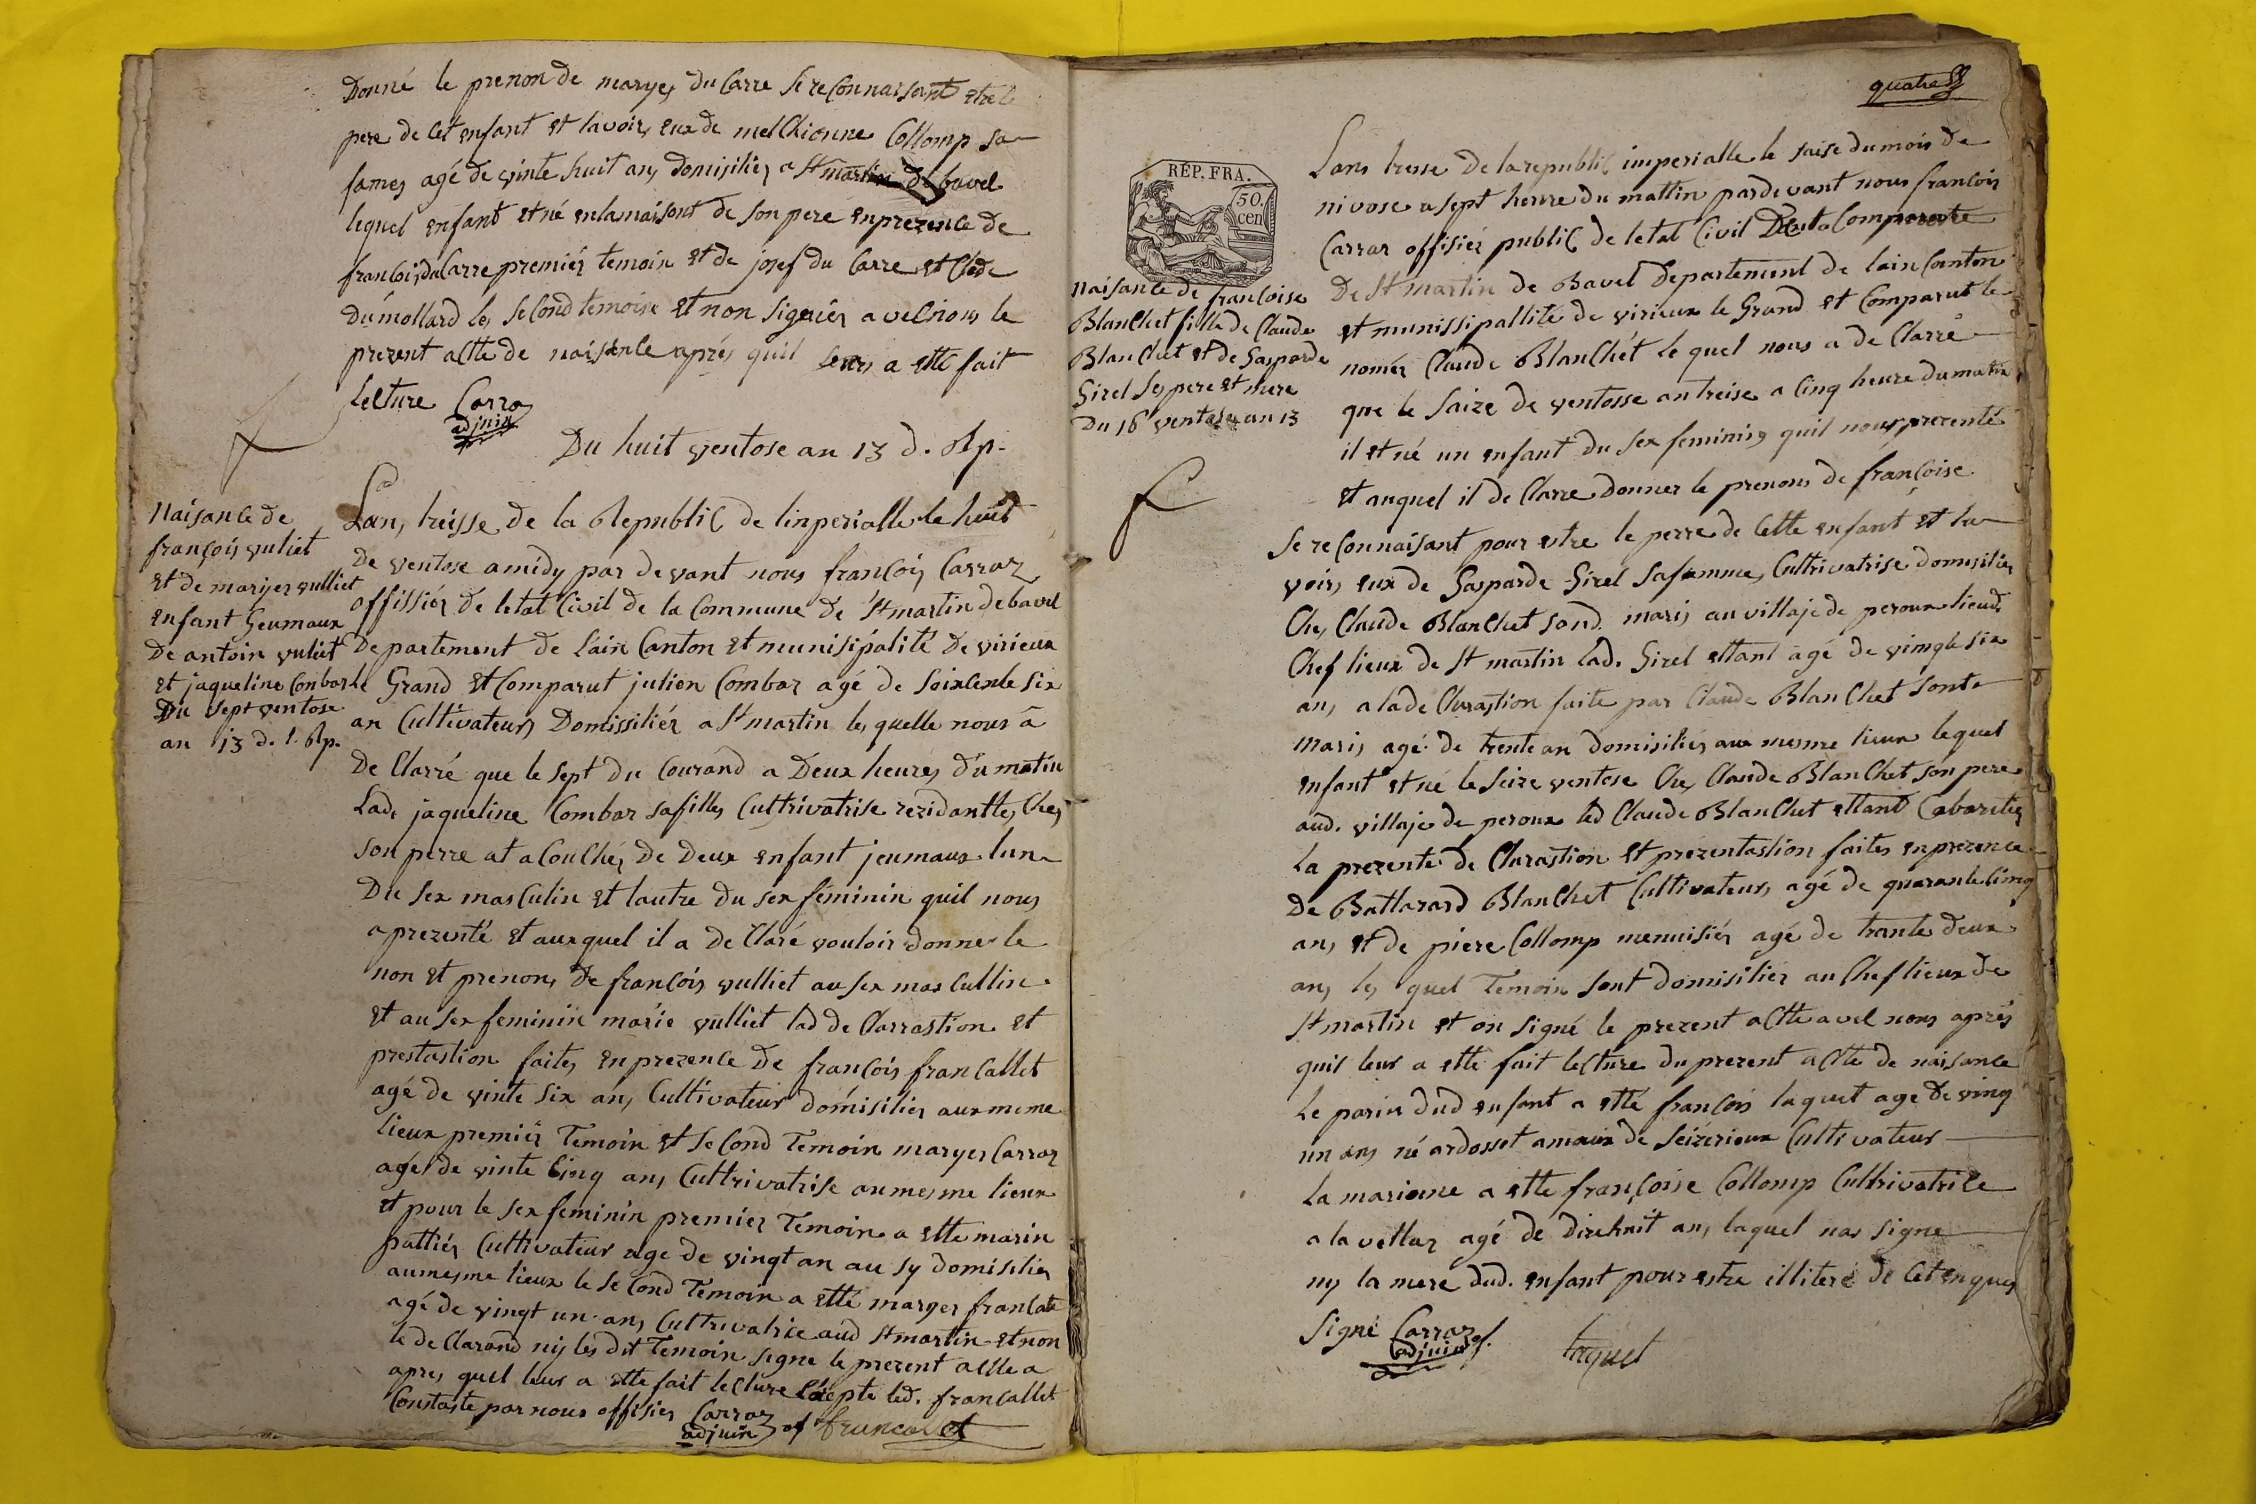 Donné le prenon de maryes du Carre se reConnaissant etre le
pere de Cet enfant et lavoir eux de melChionne Collomp sa
fames agé de vinte huit ans domisilier a St martin de bavel
lequel enfant et né en la maisont de son pere en prezence de
francois du Carre premiér temoin et de josef du Carre et Clode
du mollard les seCond temoise et non signiér avec nous le
prezent actte de naisence aprés quil leurs a ette fait
lecture Carra
adjuin
Du huit ventose an 13 d. Rp.
Naisance de
françois vuliet
et de maryer vulliet
enfant Geumaux
De antoin vuliet
et jaqueline Conbar
Du sept ventose
an 13 d. l. Rp.
Lan, treisse de la Republic de linperialle le huit
De ventose a midy par devant nous françois Carraz
offissiér de letat Civil de la Commune de St martin de bavel
Departement de lain Canton et munisipalité De virieux
le Grand et Comparut julien Combaz agé de soixcente six
an Cultivateurs Domissiliér a St martin les quelle nous â
De Clarré que le sept du Courand a Deux heures du matin
Lad. jaqueline Combaz sa filles Cultrivatrise rezidantles Ches
son perre at a Couchés De Deux enfant jeumaux lun
Du sex masculin et lautre du sex féminin quil nous
a prezenté et aux quel il a de Claré vouloir donner le
non et prenons De françois vulliet au sex mas Cullin
et au sex feminin marie vulliet lad de Clarastion et
prestastion faites en prezence de françois franCallet
agé de vinte six ans Cultivateur domisilier aux meme
lieux premiér Temoin et seCond Temoin maryer Carraz
agés de vinte Cinq ans Cultrivatrise au mesme lieux
et pour le sex feminin premier Temoin a ette marin
pattiér Cultivateur age de vingt an au sy domisilier
au mesme lieux le seCond Temoin a etté maryer francate
agé de vingt un ans Cultrivatrice aud St martin et non
le de Clarand nij les dit Temoin signe le prezent actte a
apres quel leur a ette fait lecture Céepte led. franCallet
Constaste par nous offisier Carraz
adjuin of franCallet
quatre
RÉP. FRA.
50.
cen
naisance de françoise
Blanchet fille de Claude
Blanchet et de Gasparde
Girel ses pere et mere
Du 16 ventose an 13
Lans tresse de la republic imperialle le saise du mois de
nivose a sept heure du mattin par devant nous francois
Carraz offisier public de letat Civil
De St martin de Bavel departement de lain Canton
et munissipallité de virieux le Grand et Comparut le
nomér Claude Blanchét le quel nous a de Clarré
que le saize de ventosse an treise a Cinq heure du matin
il et né un enfant du sex feminin quil nous prezenté
et auquel il de Clarre donner le prenons de françoise
se reConnaisant pour estre le perre de Cette enfant et la
voirs eux de Gasparde Girel sa femme, Cultrivatrise domisilier
Ches Claude Blanchet sond. maris au villaje de peroux lieud
Chef lieux de St martin lad. Girel ettant âgé de vingte six
ans a la de Clarastion faite par Claude Blanchet sont
maris agé de trente an domisiliér aux mesme lieux lequel
enfant et né le seize ventose Ches Claude Blanchet son pere
aud. villaje de peroux led Claude Blanchet ettant Cabaretier
la prezente de Clarastion et prezentastion faites en prezence
De Baltazard Blanchet Cultivateurs agé de quarante cinq
ans et de piere Collomp menuisiér agé de trante deux
ans les quel Temoin sont domisilier au Chef lieux de
St martin et on signé le prezent actte avec nous aprés
quil leur a ette fait lecture du prezent actte de naisance
Le parin dud enfant a etté françois laquet age de ving
un ans né ardosset a maux de seizérieux Cultivateur
la marienne a ette françoise Collomp Cultrivatrice
a la vellaz agé de dixhuit ans laquel nas signe
nij la mere dud. enfant pour estre illiteré de Cet enques
signé Carraz
adjuin of. laquet